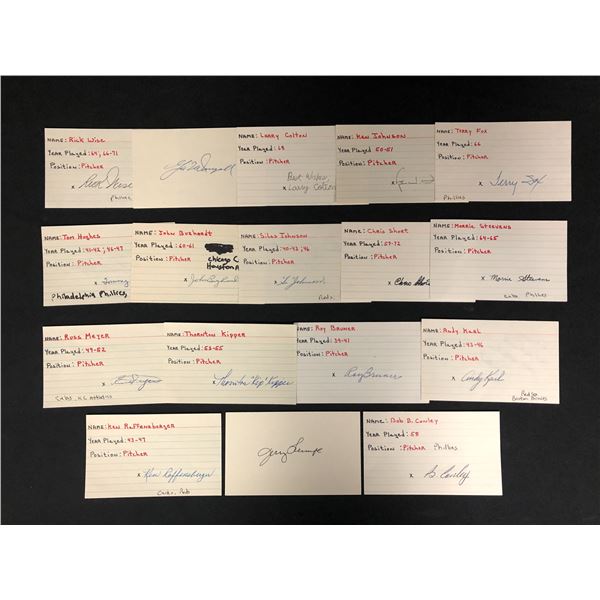 NAME: Rick Wise
Year Played: 64, 66-71
Position: Pitcher
x Rick Wise
Phillies
NAME: Larry Colton
Year Played: 68
Position: Pitcher
Best Wishes,
x Larry Colton
NAME: Ken Johnson
Year Played: 50-51
Position: Pitcher
x
NAME: Terry Fox
Year Played: 66
Position: Pitcher
x Terry Fox
Phillies
NAME: Tom Hughes
Year Played: 41-42, 46-47
Position: Pitcher
x Tommy
Philadelphia Phillies,
NAME: John Buzhardt
Year Played: 60-61
Position: Pitcher
Chicago C
Houston A
x John Buzhardt
NAME: Silas Johnson
Year Played: 40-43, 46
Position: Pitcher
x Si Johnson
Reds
NAME: Chris Short
Year Played: 59-72
Position: Pitcher
x Chris Short
NAME: Morrie Steevens
Year Played: 64-65
Position: Pitcher
x Morrie Steevens
Cubs Phillies
NAME: Ross Meyer
Year Played: 49-52
Position: Pitcher
x
Cubs, K.C. Athletics
NAME: Thornton Kipper
Year Played: 53-55
Position: Pitcher
x Thornton "Kip" Kipper
NAME: Roy Bruner
Year Played: 39-41
Position: Pitcher
x Roy Bruner
NAME: Andy Karl
Year Played: 43-46
Position: Pitcher
x Andy Karl
Red Sox
Boston Braves
NAME: Ken Raffensberger
Year Played: 43-47
Position: Pitcher
x Ken Raffensberger
Cubs, Reds
NAME: Bob B. Conley
Year Played: 58
Position: Pitcher Phillies
x B. Conley